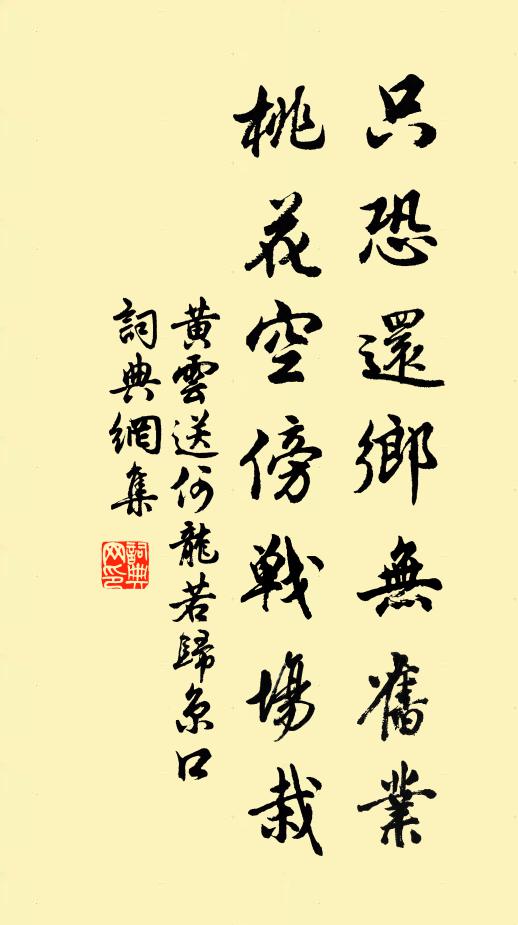 只恐還鄉無舊業
桃花空傍戰場栽
黃雲送何龍若歸京口
詞典網集
詞典網印